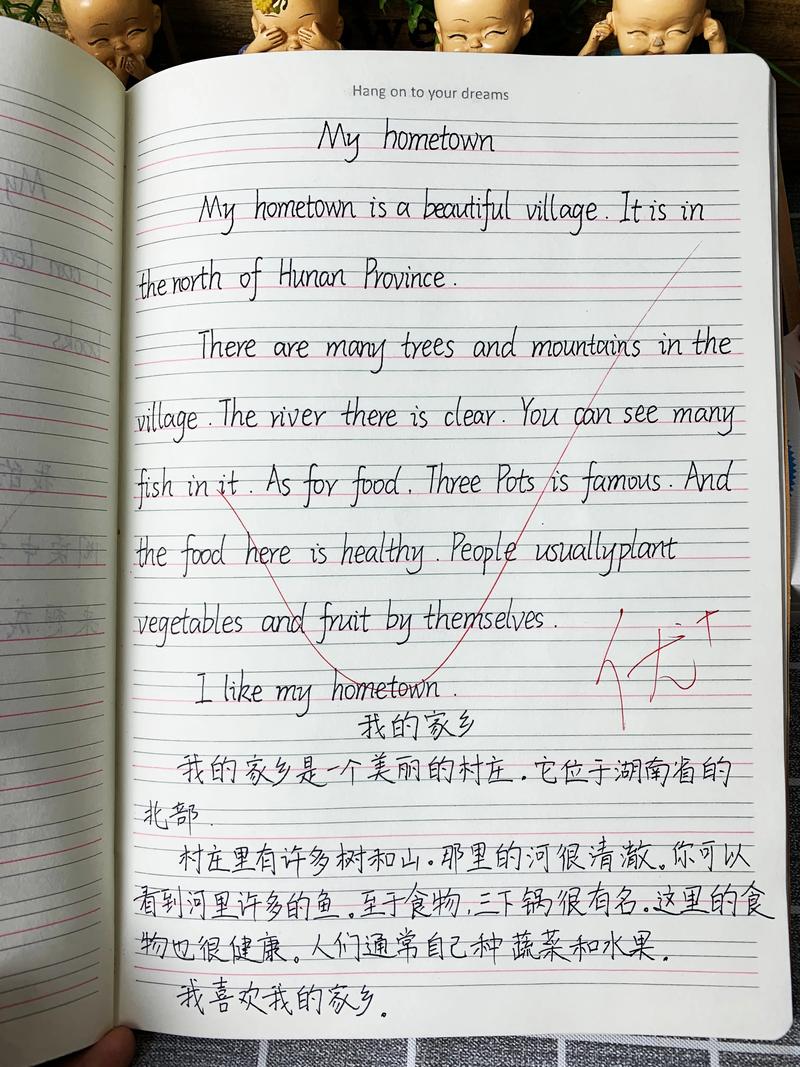 Hang on to your dreams
My hometown
My hometown is a beautiful village. It is in
the north of Hunan Province.
There are many trees and mountains in the
village. The river there is clear. You can see many
fish in it. As for food, Three Pots is famous. And
the food here is healthy. People usually plant
vegetables and fruit by themselves.
优+
I like my hometown.
我的家乡
我的家乡是一个美丽的村庄。它位于湖南省的
北部.
村庄里有许多树和山。那里的河很清澈。你可以
看到河里许多的鱼。至于食物,三下锅很有名。这里的食
物也很健康。人们通常自己种蔬菜和水果。
我喜欢我的家乡。